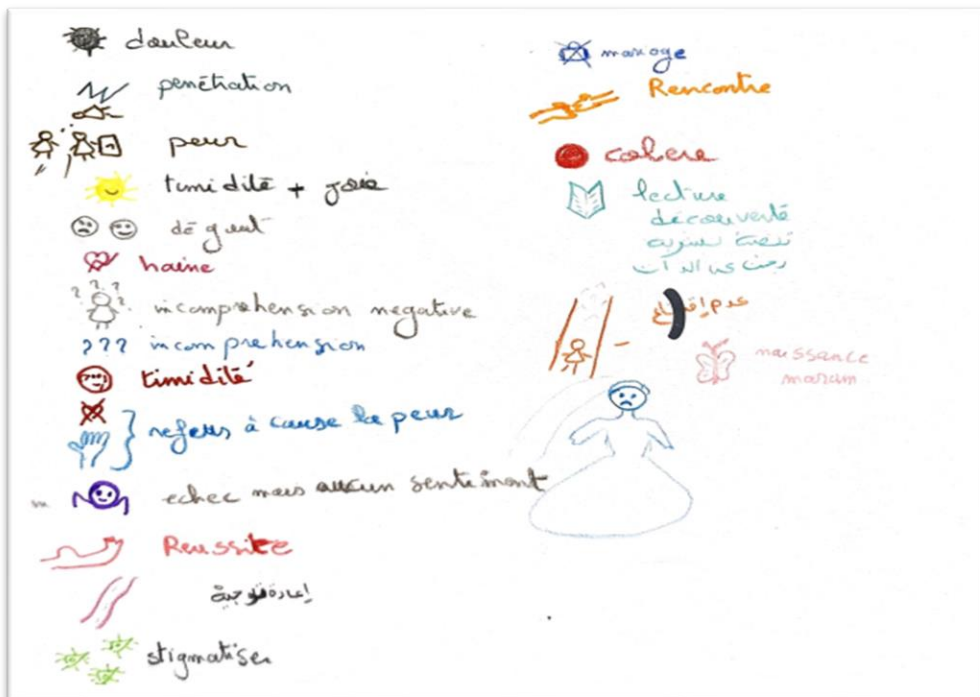 douleur
penétration
peur
timidité + joie
dégout
haine
???
incomprehension negative
??? incomprehension
timidité
refus à cause la peur
echec mais aucun sentiment
Reussite
إعادة توجيه
stigmatiser
mariage
Rencontre
colere
lecture
découverte
عدم
naissance